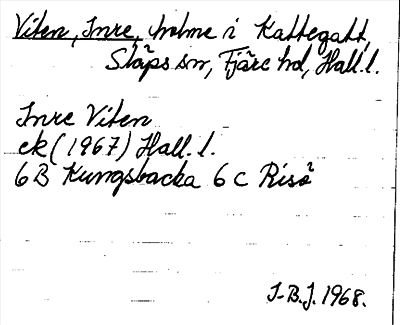 Viten, Inre, holme i Kattegatt,
Släps sn, Fjäre hd, Hall. l.
Inre Viten
ek (1967) Hall. l.
6B Kungsbacka 6C Risö
J-B.J. 1968.